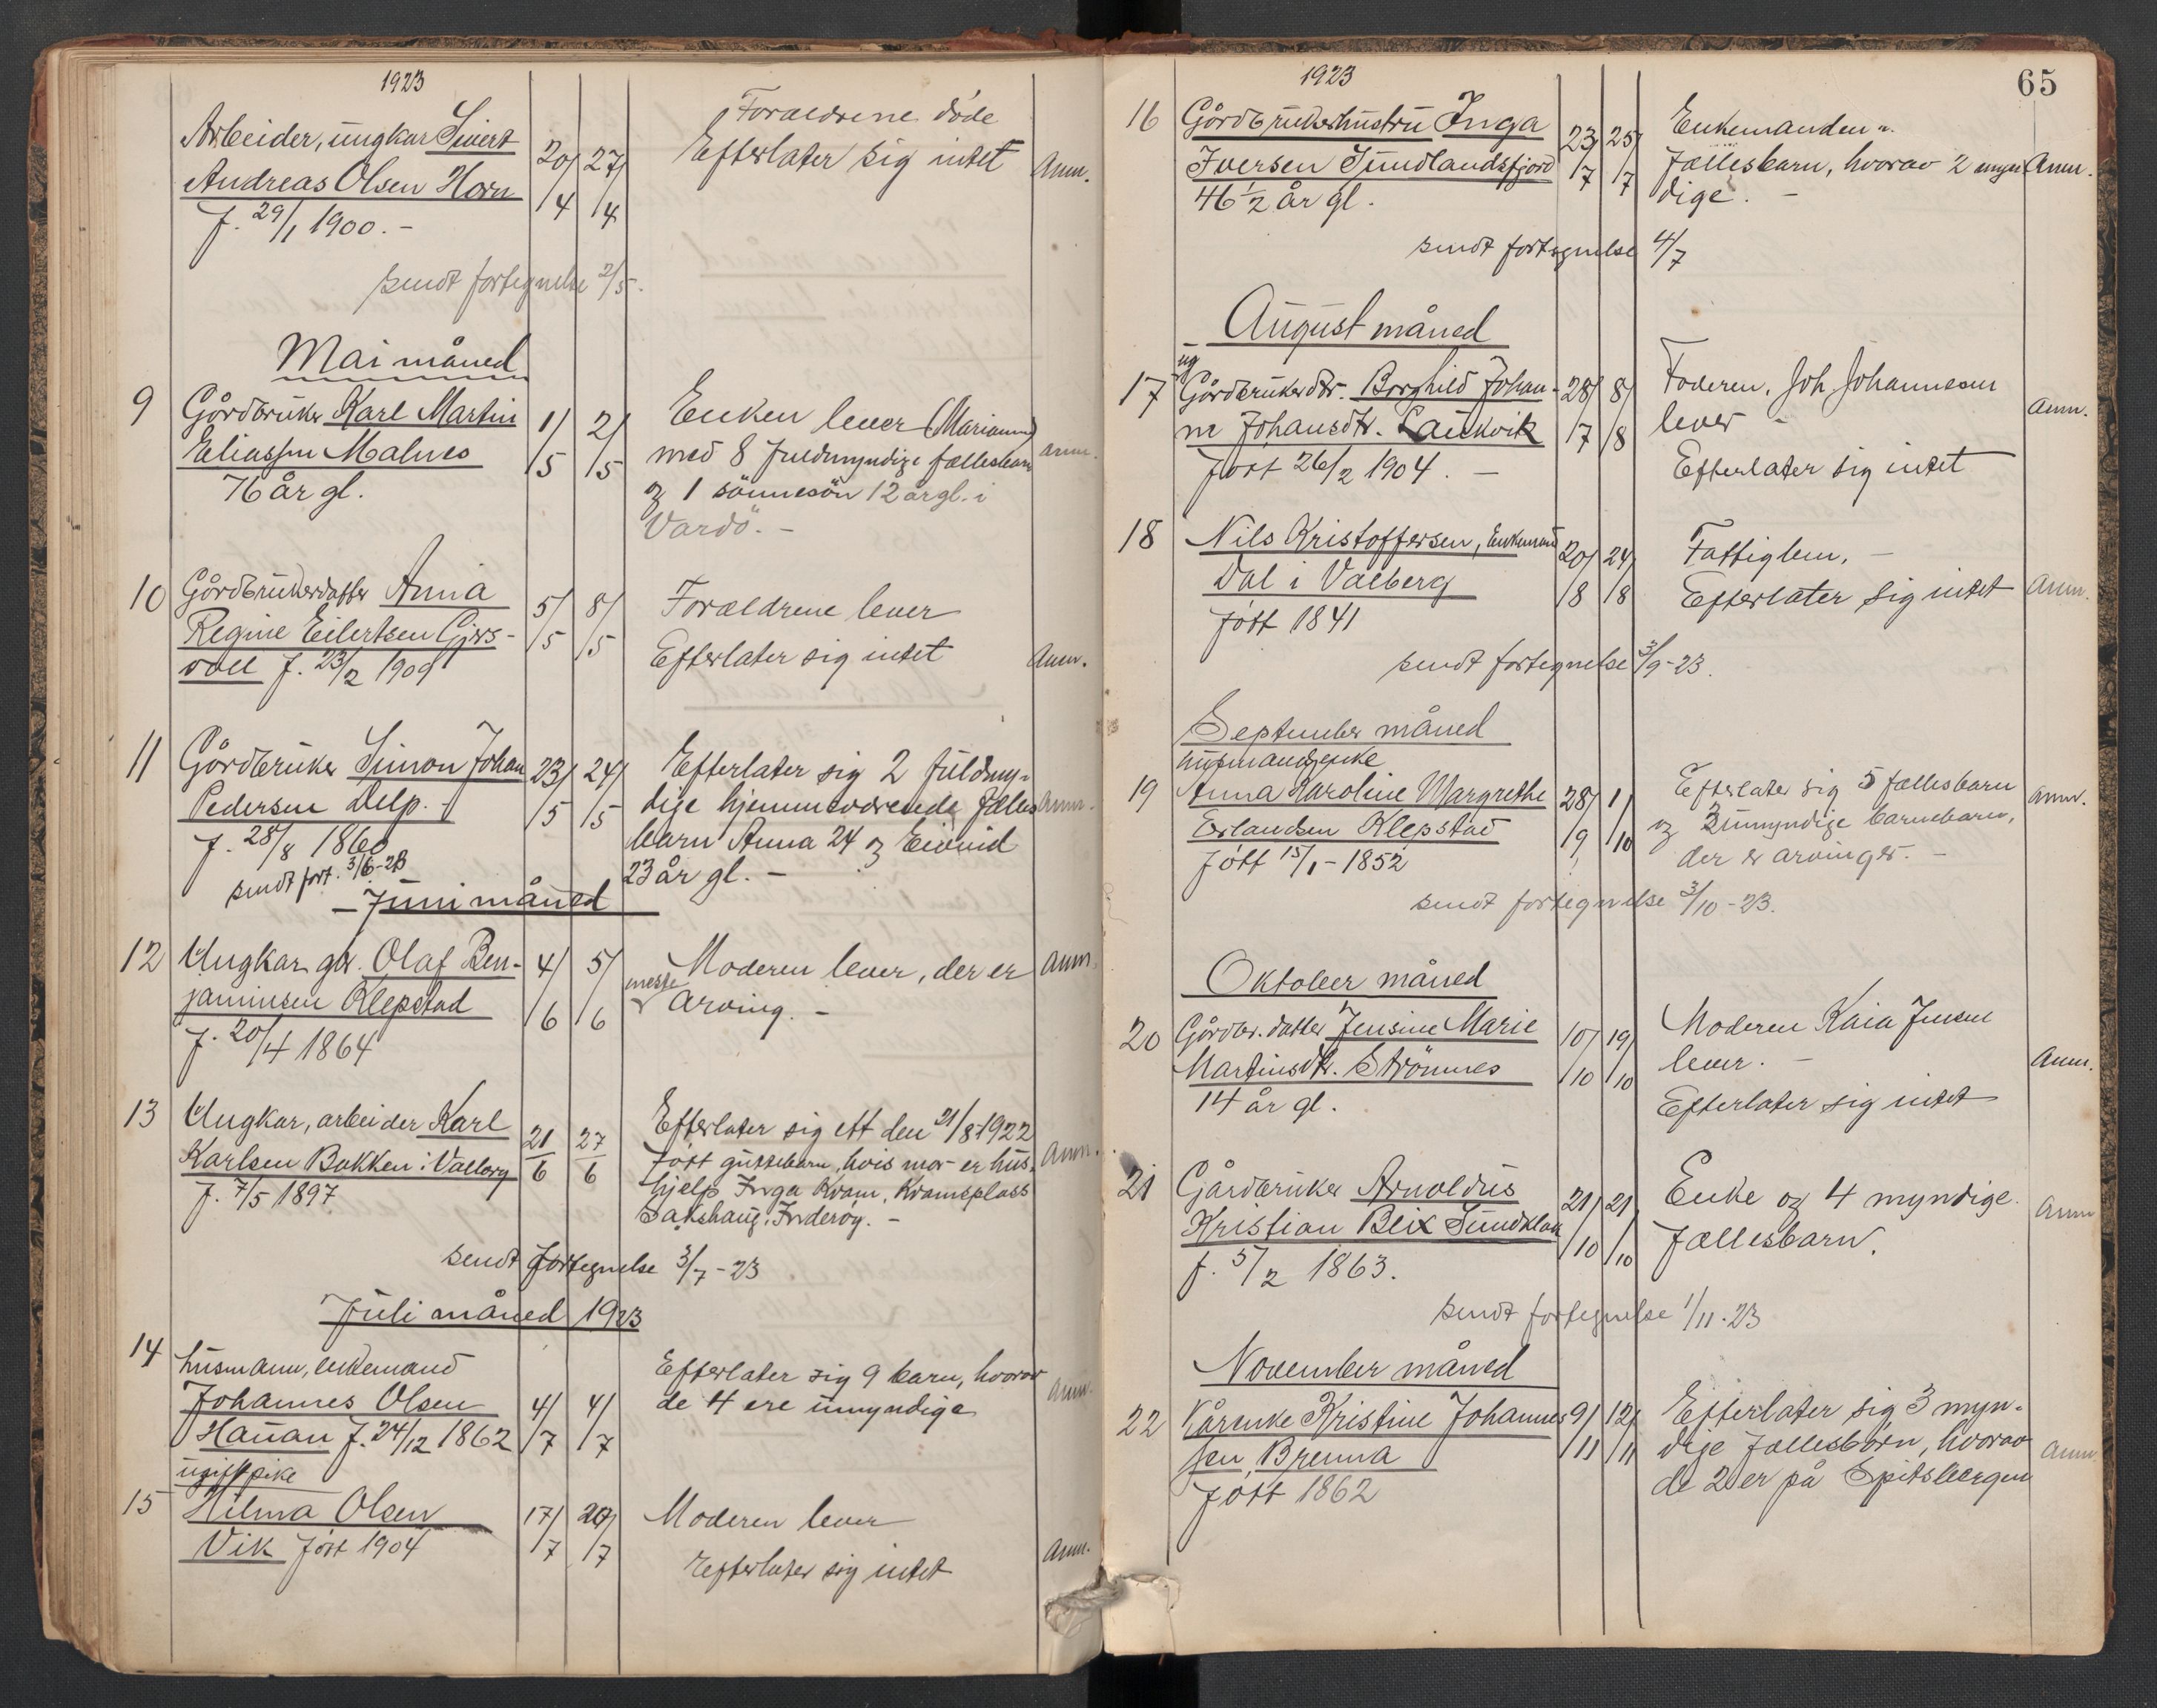 1923
Arbeider, ungkar Sivert
Andreas Olsen Horn
f. 29/1 1900. -
20/4 27/4
Foraeldrene döde
Efterlater sig intet
Anm.
sendt fortegnelse 2/5.
Mai måned
9 Gårdbruker Karl Martin
Eliassen Malnes
76 år gl.
1/5 2/5
Enken lever (Marianna)
med 8 fuldmyndige fællesbarn
og 1 sönnesön 12 år gl. i
Vardö. -
anm.
10 Gårdbrukerdatter Anna
Regine Eilertsen Girs-
voll f. 23/2 1909
5/5 8/5
Forældrene lever
Efterlater sig intet
Anm.
11 Gårdbruker Simon Johan
Pedersen Delp. -
f. 28/8 1860
sendt fort. 3/6-23
23/5 24/5
Efterlater sig 2 fuldmyn-
dige hjemmeværende fælles
barn Anna 24 og Eivind
23 år gl. -
Anm.
Juni måned
12 Ungkar gbr. Olaf Ben-
jaminsen Klepstad
f. 20/4 1864
4/6 5/6
Moderen lever, der er
arving. -
anm.
13 Ungkar, arbeider Karl
Karlsen Bakken i Valberg
f. 7/5 1897
21/6 27/6
Efterlater sig ett den 21/8 1922
född guttebarn, hvis mor er hus-
hjelp Inga Kvam, Kvamsplass
Sakshaug, Inderöy. -
anm.
sendt fortegnelse 3/7-23
Juli måned 1923
14 husmann, enkemand
Johannes Olsen
Hauan f. 24/12 1862
4/7 4/7
Efterlater sig 9 barn, hvorav
de 4 ere umyndige
anm.
ugift pike
15 Hilma Olsen
Vik født 1904
17/7 20/7
Moderen lever
Efterlater sig intet
anm.
65
1923
16 Gårdbrukerhustru Inga
Iversen Sundlandsfjord
46 1/2 år gl.
23/7 25/7
Enkemanden
fællesbarn, hvorav 2 umyn
dige. -
Anm.
sendt fortegnelse 4/7
August måned
ug
17 Gårdbrukerdtr. Borghild Johan-
ne Johansdtr. Laukvik
født 26/2 1904. -
28/7 8/8
Faderen, Joh Johannesen
lever -
Efterlater sig intet
anm.
18 Nils Kristoffersen, Enkemand
Dal i Valberg
født 1841
20/8 24/8
Fattiglem. -
Efterlater sig intet
anm.
sendt fortegnelse 3/9-23.
September måned
husmandsenke
19 Anna Karoline Margrethe
Erlandsen Klepstad
født 15/1-1852
28/9 1/10
Efterlater sig 5 fællesbarn
og 2 umyndige barnebarn,
der er arvinger. -
anm.
sendt fortegnelse 3/10-23.
Oktober måned
20 Gårdbr. datter Jensine Marie
Martinsdtr. Strömnes
14 år gl.
10/10 19/10
Moderen Kaia Jensen
lever. -
Efterlater sig intet
Anm.
21 Gårdbruker Arnoldus
Kristian Blix Sundklak
f. 5/2 1863.
21/10 21/10
Enke og 4 myndige
fællesbarn.
Anm
sendt fortegnelse 1/11.23
November måned
22 Kårenke Kristine Johannes
sen, Brenna
født 1862
9/11 12/11
Efterlater sig 3 myn-
dige fællesbörn, hvorav
de 2 er på Spitsbergen
anm.